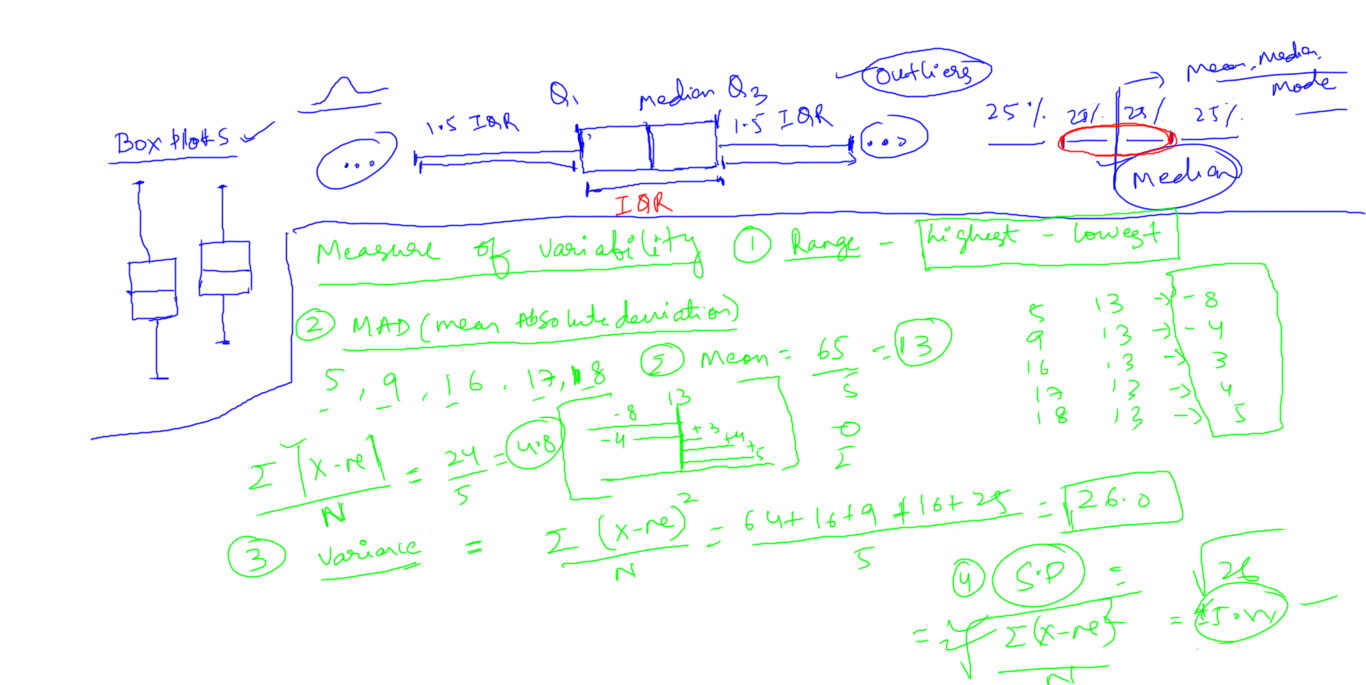 Box plots
1.5 IQR
Q1
median Q3
1.5 IQR
Outliers
IQR
25% 25% 25% 25%
Mean, Median,
Mode
Median
Measure of variability ① Range - highest - lowest
② MAD (mean Absolute deviation)
5, 9, 16, 17, 18
Mean = 65/5 = 13
5 13 → -8
9 13 → -4
16 13 → 3
17 13 → 4
18 13 → 5
13
-8
-4
+3
+4
+5
Σ|x-me|/N = 24/5 = 4.8
0
③ variance = Σ(x-me)²/N = 64+16+9+16+25/5 = 26.0
④ S.D = √26
= √Σ(x-me)²/N =